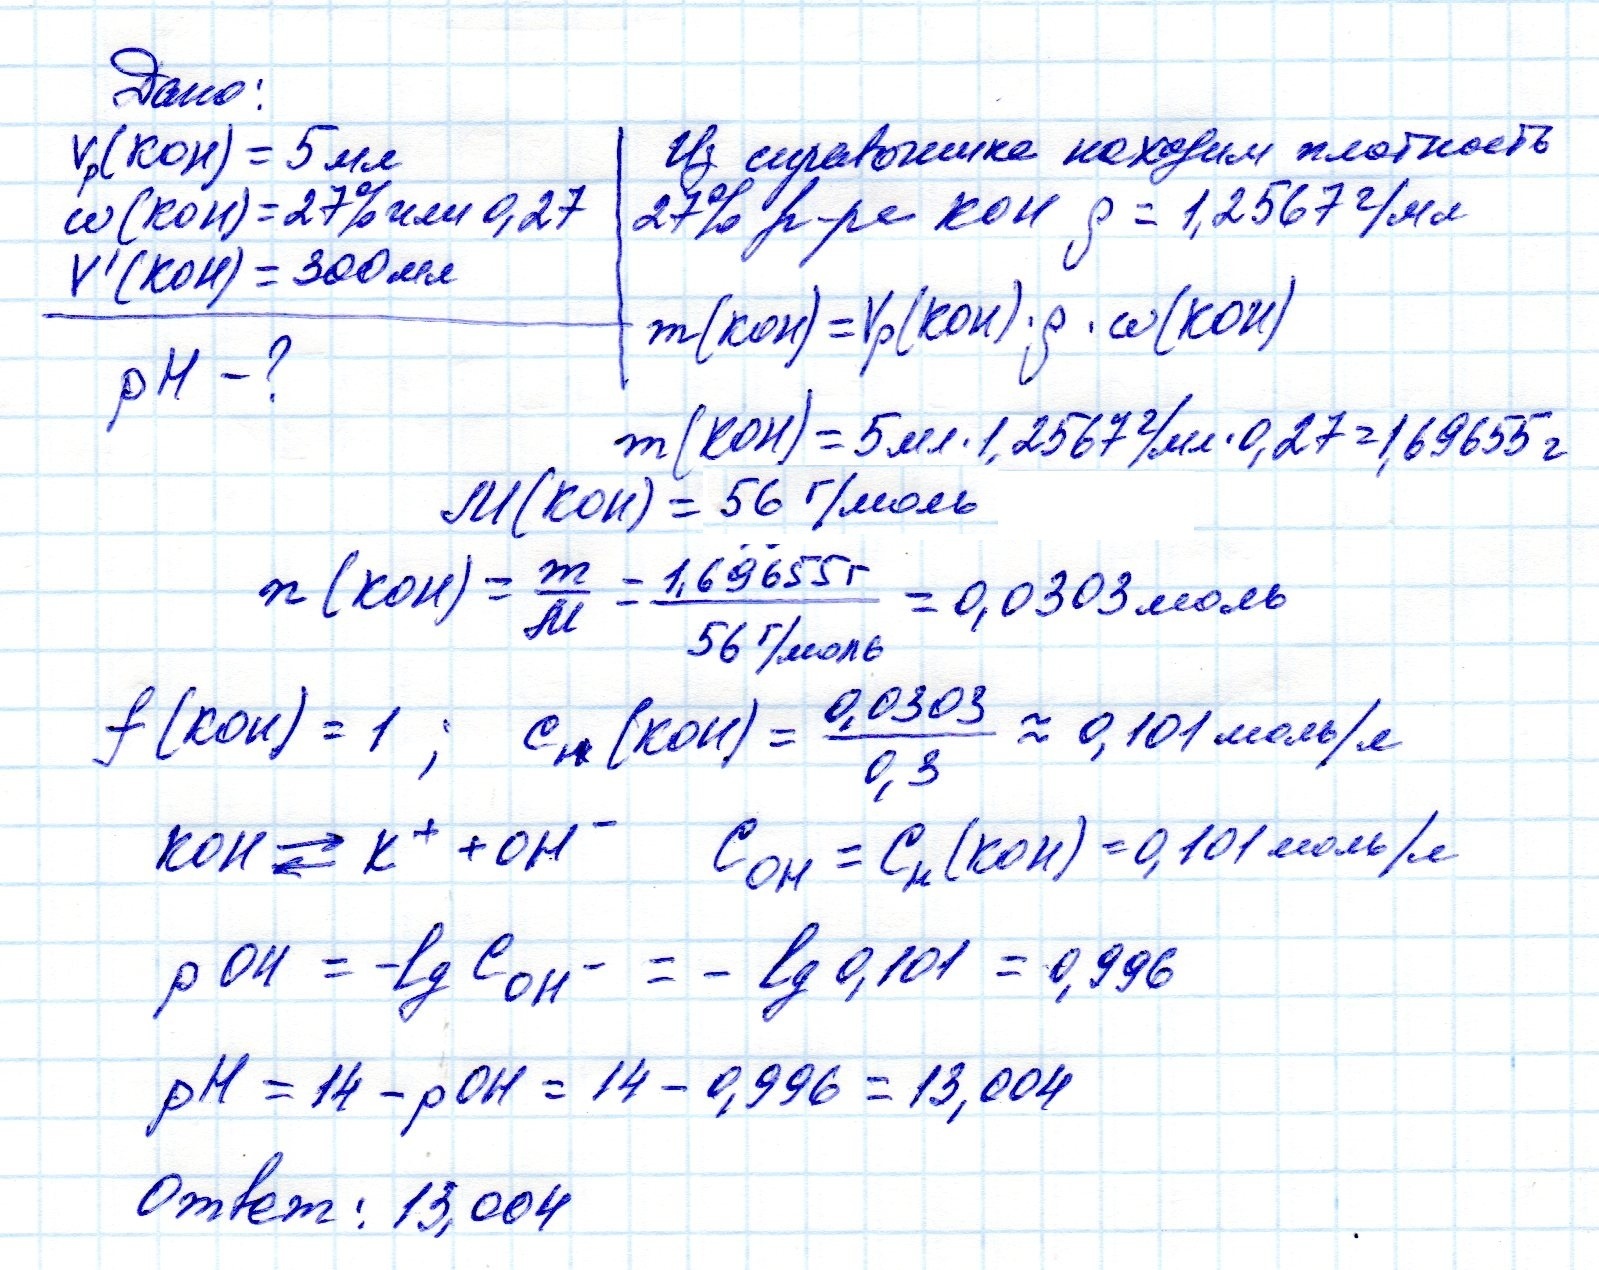 Дано:
Vр(KOH) = 5 мл
ω(KOH) = 27% или 0,27
V'(KOH) = 300 мл
pH - ?
Из справочника находим плотность
27% р-ра KOH ρ = 1,2567 г/мл
m(KOH) = Vр(KOH) · ρ · ω(KOH)
m(KOH) = 5 мл · 1,2567 г/мл · 0,27 = 1,69655 г
M(KOH) = 56 г/моль
n(KOH) = m/M = 1,69655 г / 56 г/моль = 0,0303 моль
f(KOH) = 1 ; Cн(KOH) = 0,0303 / 0,3 ≈ 0,101 моль/л
KOH ⇌ K⁺ + OH⁻ COH = Cн(KOH) = 0,101 моль/л
pOH = -lg COH⁻ = - lg 0,101 = 0,996
pH = 14 - pOH = 14 - 0,996 = 13,004
Ответ: 13,004